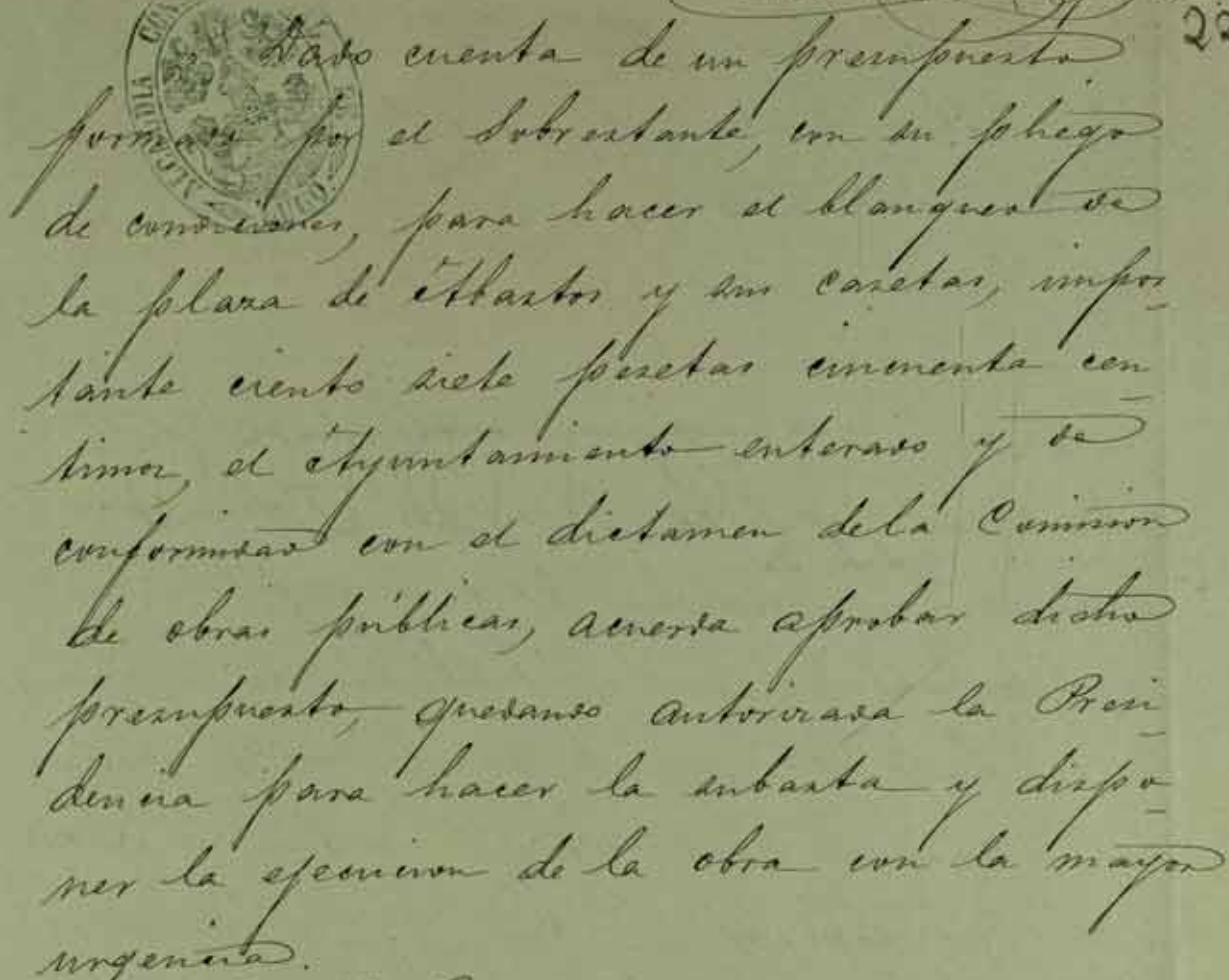 Dado cuenta de un presupuesto
formado por el Sobrestante, con su pliego
de condiciones, para hacer el blanqueo de
la plaza de Abastos y sus casetas, impor
tante ciento siete pesetas cincuenta cen
timos, el Ayuntamiento enterado y de
conformidad con el dictamen dela Comision
de obras públicas, acuerda aprobar dicho
presupuesto, quedando autorizada la Presi
dencia para hacer la subasta y dispo
ner la ejecucion de la obra con la mayor
urgencia.